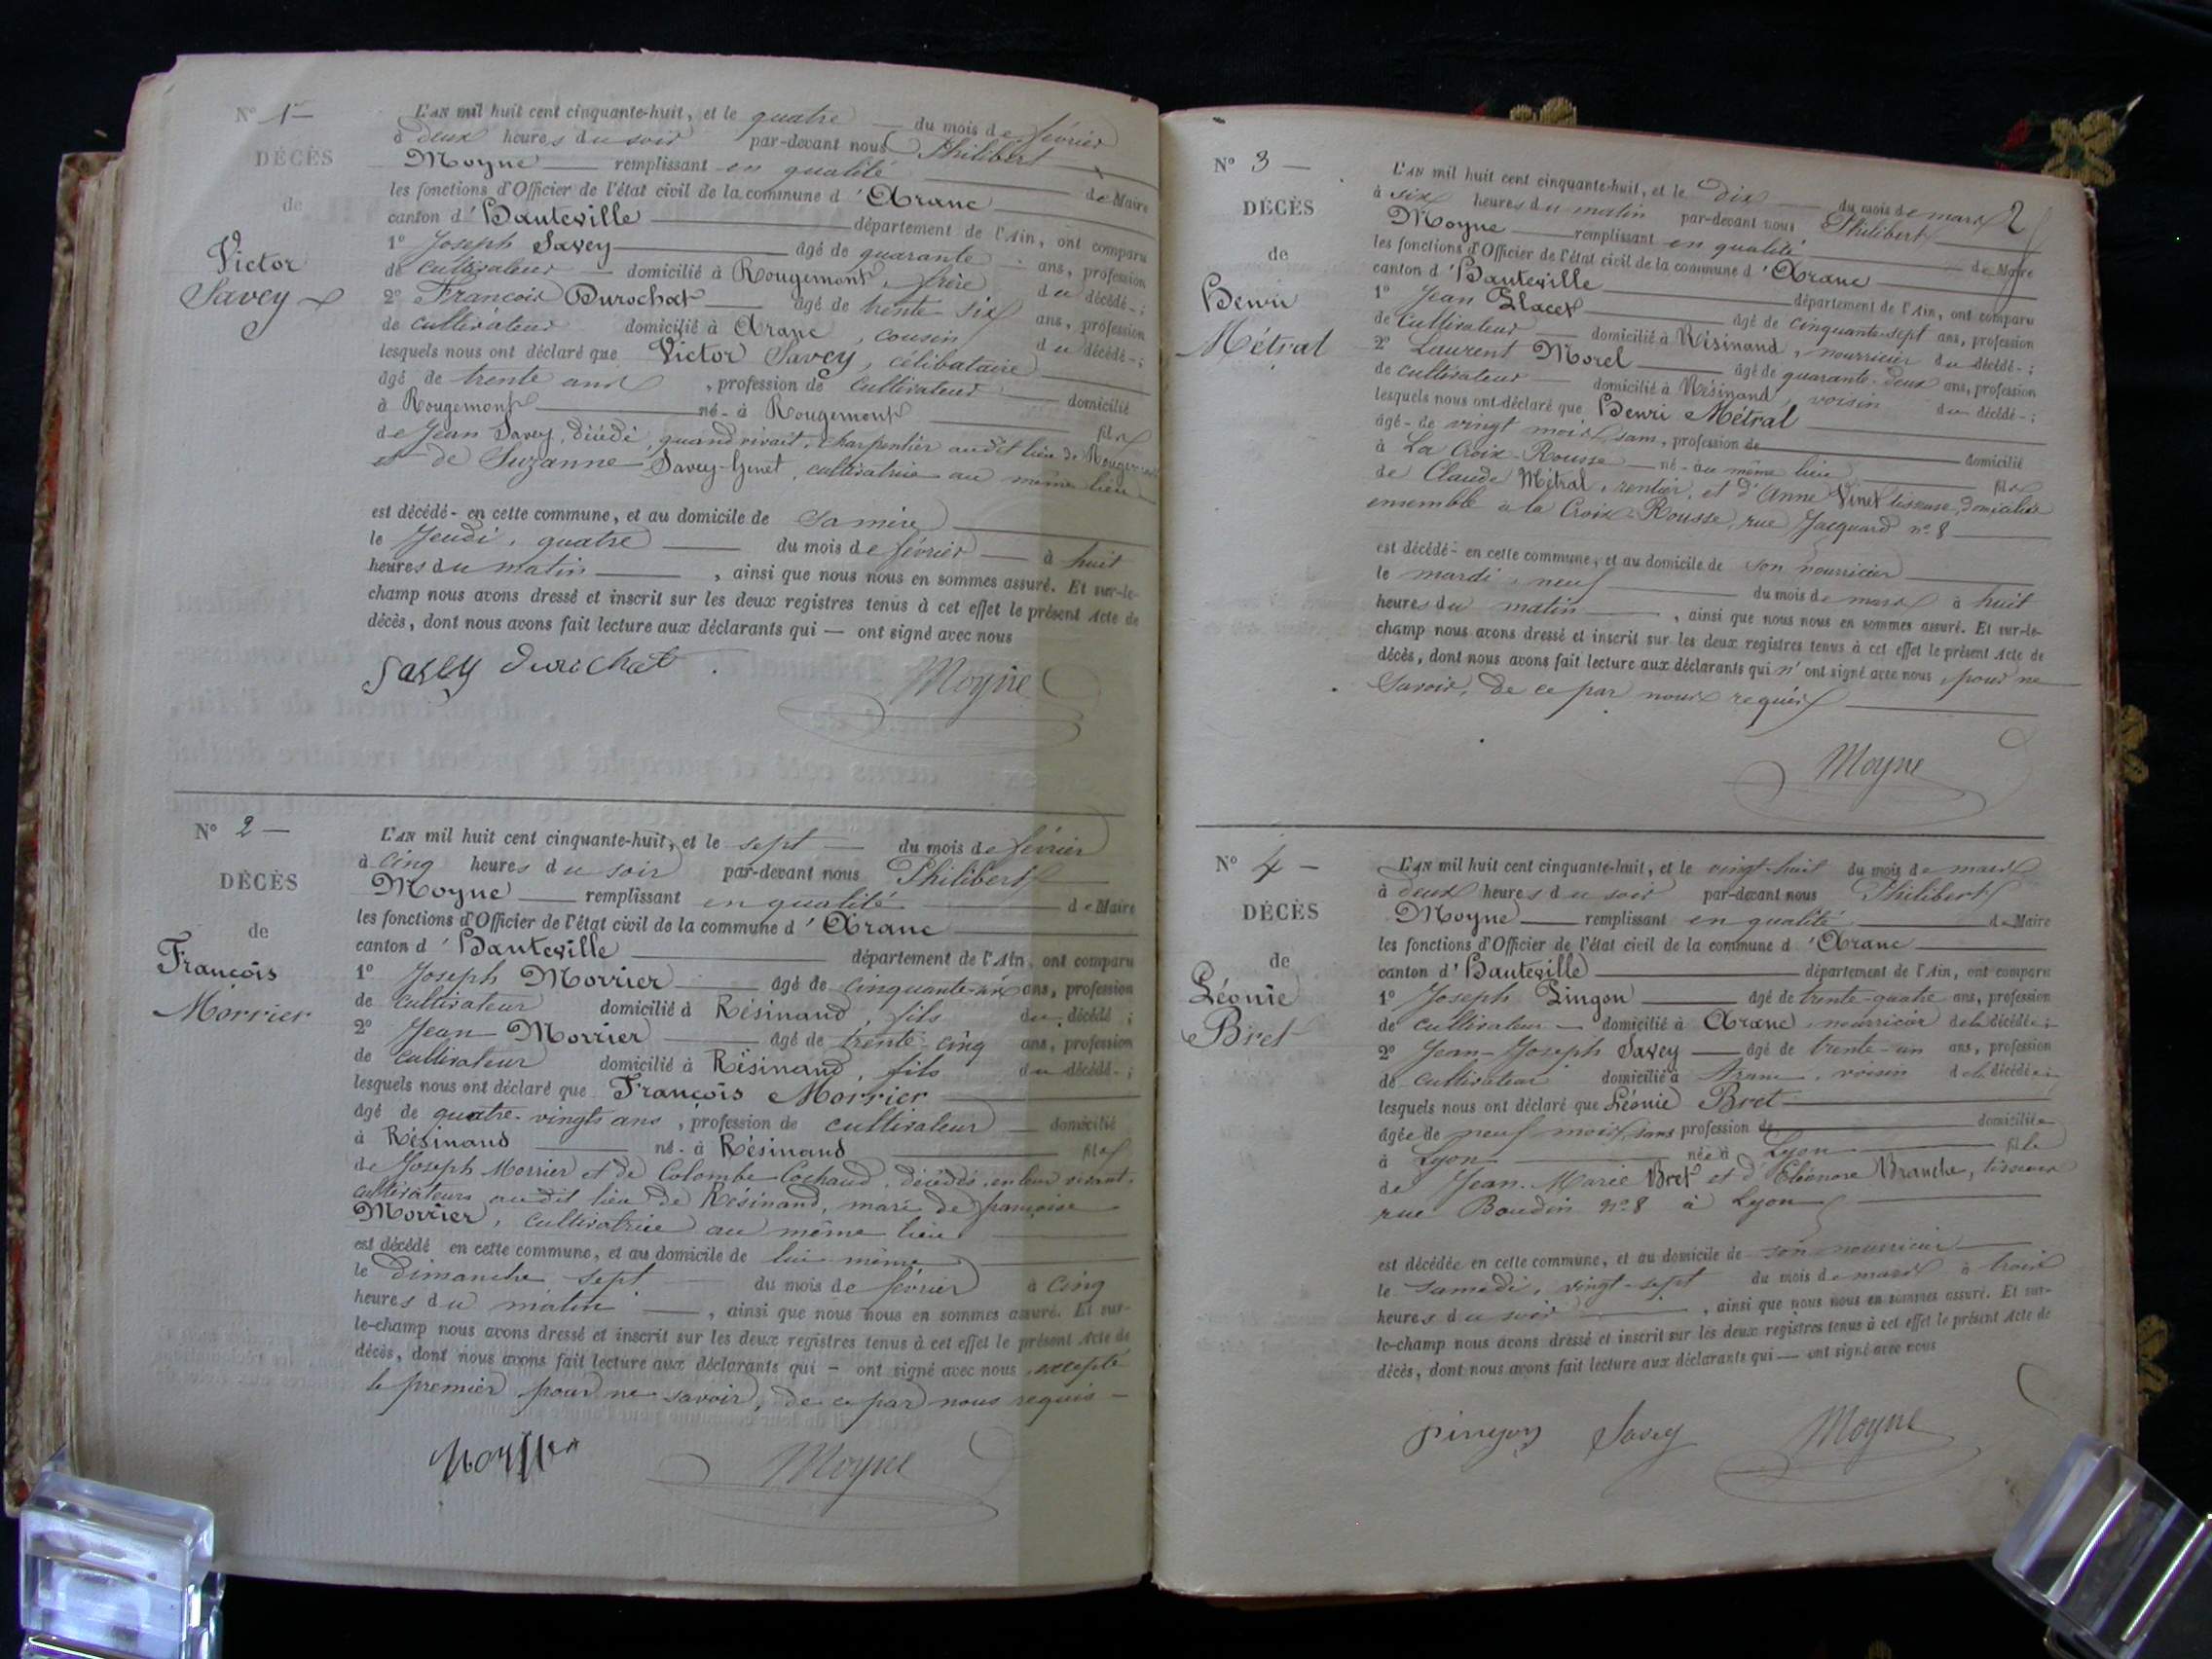 N° 1 —
DÉCÈS
de
Victor
Savey
L'AN mil huit cent cinquante-huit, et le quatre — du mois de février
à deux heures du soir par-devant nous Philibert
Moyne — remplissant en qualité — de Maire
les fonctions d'Officier de l'état civil de la commune d'Aranc
canton d'Hauteville — département de l'Ain, ont comparu
1° Joseph Savey — âgé de quarante — ans, profession
de cultivateur — domicilié à Rougemont, frère du décédé - ;
2° François Durochat — âgé de trente-six ans, profession
de cultivateur domicilié à Aranc, cousin du décédé - ;
lesquels nous ont déclaré que Victor Savey, célibataire
âgé de trente ans, profession de cultivateur — domicilié
à Rougemont — né - à Rougemont — fils
de Jean Savey, décédé, quand vivait, charpentier audit lieu de Rougemont
et de Suzanne Savey-Genet, cultivatrice au même lieu
est décédé - en cette commune, et au domicile de sa mère
le Jeudi, quatre — du mois de février — à huit
heures du matin — , ainsi que nous nous en sommes assuré. Et sur-le-
champ nous avons dressé et inscrit sur les deux registres tenus à cet effet le présent Acte de
décès, dont nous avons fait lecture aux déclarants qui — ont signé avec nous
Savey durochat Moyne
N° 2 —
DÉCÈS
de
François
Morrier
L'AN mil huit cent cinquante-huit, et le sept — du mois de février
à cinq heures du soir par-devant nous Philibert
Moyne — remplissant en qualité — de Maire
les fonctions d'Officier de l'état civil de la commune d'Aranc
canton d'Hauteville — département de l'Ain, ont comparu
1° Joseph Morrier — âgé de cinquante-un ans, profession
de cultivateur domicilié à Résinand, fils du décédé ;
2° Jean Morrier — âgé de trente-cinq ans, profession
de cultivateur domicilié à Résinand, fils du décédé - ;
lesquels nous ont déclaré que François Morrier
âgé de quatre-vingts ans, profession de cultivateur — domicilié
à Résinand — né - à Résinand — fils
de Joseph Morrier et de Colombe Cochaud, décédés, en leur vivant,
cultivateurs audit lieu de Résinand, marié de françoise
Morrier, cultivatrice au même lieu
est décédé en cette commune, et au domicile de lui-même
le Dimanche sept — du mois de février à cinq
heures du matin — , ainsi que nous nous en sommes assuré. Et sur-
le-champ nous avons dressé et inscrit sur les deux registres tenus à cet effet le présent Acte de
décès, dont nous avons fait lecture aux déclarants qui — ont signé avec nous, excepté
le premier pour ne savoir, de ce par nous requis —
Morrier Moyne
2
N° 3 —
DÉCÈS
de
Henri
Métral
L'AN mil huit cent cinquante-huit, et le dix — du mois de mars
à six heures du matin par-devant nous Philibert
Moyne — remplissant en qualité — de Maire
les fonctions d'Officier de l'état civil de la commune d'Aranc
canton d'Hauteville — département de l'Ain, ont comparu
1° Jean Placet — âgé de cinquante-sept ans, profession
de cultivateur — domicilié à Résinand, nourricier du décédé - ;
2° Laurent Morel — âgé de quarante-deux ans, profession
de cultivateur — domicilié à Résinand, voisin du décédé - ;
lesquels nous ont déclaré que Henri Métral
âgé - de vingt mois, sans, profession de — domicilié
à La Croix-Rousse — né - au même lieu — fils
de Claude Métral, rentier, et d'Anne Vinet tisseuse, domiciliés
ensemble à la Croix-Rousse, rue Jacquard n° 8
est décédé - en cette commune, et au domicile de son nourricier
le mardi, neuf — du mois de mars à huit
heures du matin — , ainsi que nous nous en sommes assuré. Et sur-le-
champ nous avons dressé et inscrit sur les deux registres tenus à cet effet le présent Acte de
décès, dont nous avons fait lecture aux déclarants qui n'ont signé avec nous, pour ne
savoir, de ce par nous requis
Moyne
N° 4 —
DÉCÈS
de
Léonie
Bret
L'AN mil huit cent cinquante-huit, et le vingt-huit du mois de mars
à deux heures du soir par-devant nous Philibert
Moyne — remplissant en qualité — de Maire
les fonctions d'Officier de l'état civil de la commune d'Aranc
canton d'Hauteville — département de l'Ain, ont comparu
1° Joseph Pingon — âgé de trente-quatre ans, profession
de cultivateur — domicilié à Aranc, nourricier de la décédée ;
2° Jean-Joseph Savey — âgé de trente-un ans, profession
de cultivateur domicilié à Aranc, voisin de la décédée ;
lesquels nous ont déclaré que Léonie Bret
âgée de neuf mois, sans profession de — domiciliée
à Lyon — née à Lyon — fille
de Jean-Marie Bret et d'Eléonore Branche, tisseurs
rue Boudin n° 8 à Lyon
est décédée en cette commune, et au domicile de son nourricier
le samedi, vingt-sept du mois de mars à trois
heures du soir — , ainsi que nous nous en sommes assuré. Et sur-
le-champ nous avons dressé et inscrit sur les deux registres tenus à cet effet le présent Acte de
décès, dont nous avons fait lecture aux déclarants qui — ont signé avec nous
pingon Savey Moyne